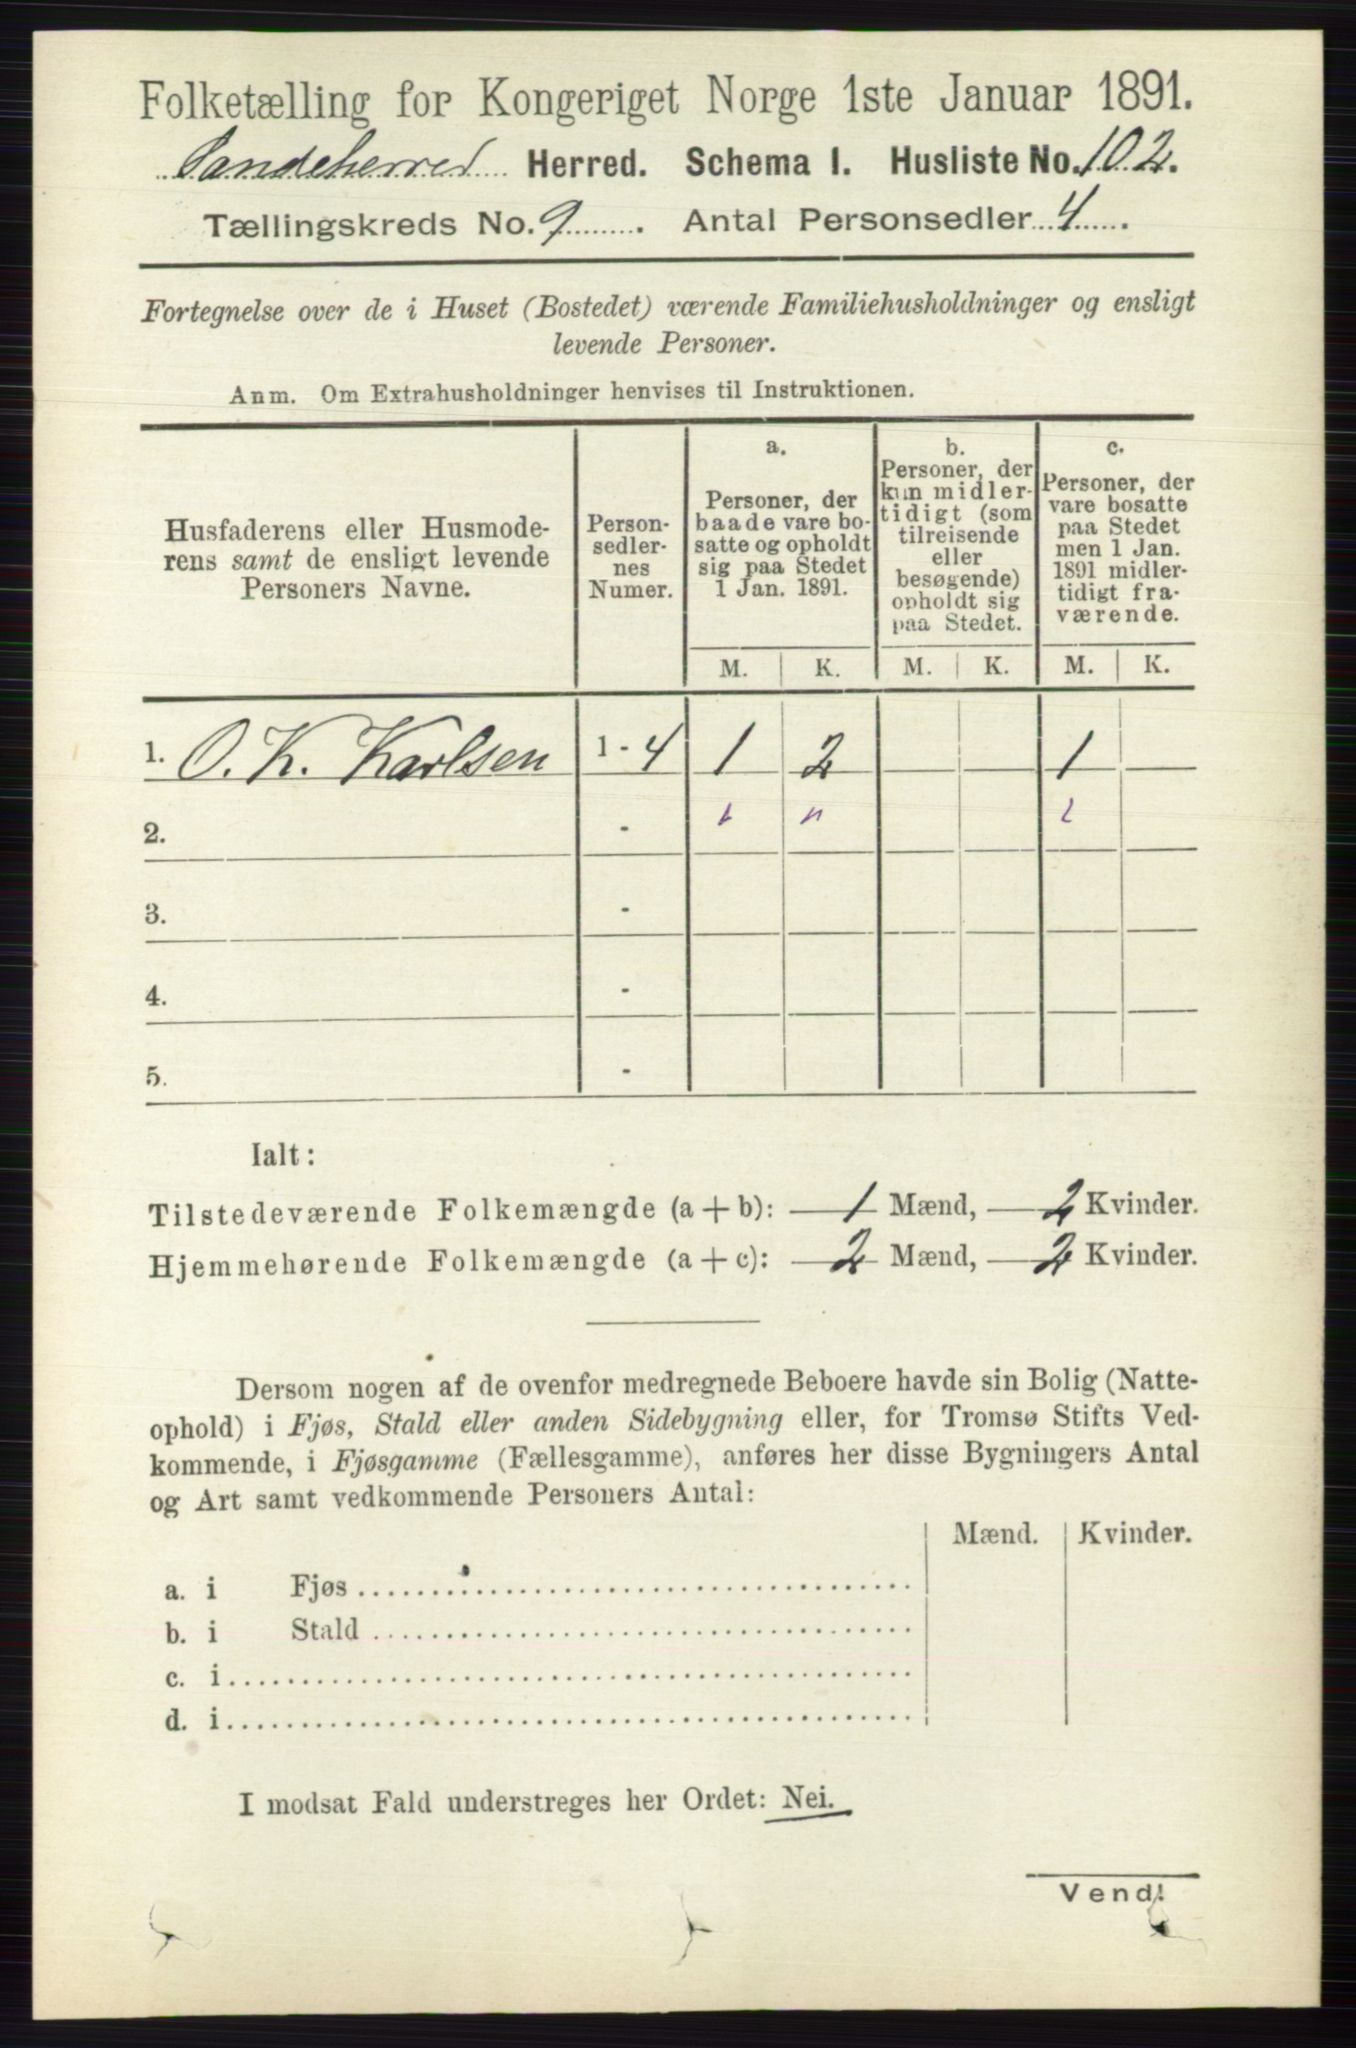 Folketælling for Kongeriget Norge 1ste Januar 1891.
Sandeherred Herred. Schema I. Husliste No. 102.
Tællingskreds No. 9. Antal Personsedler 4.
Fortegnelse over de i Huset (Bostedet) værende Familiehusholdninger og ensligt
levende Personer.
Anm. Om Extrahusholdninger henvises til Instruktionen.
Husfaderens eller Husmode-
rens samt de ensligt levende
Personers Navne.
Person-
sedler-
nes
Numer.
a.
Personer, der
baade vare bo-
satte og opholdt
sig paa Stedet
1 Jan. 1891.
b.
Personer, der
kun midler-
tidigt (som
tilreisende
eller
besøgende)
opholdt sig
paa Stedet.
c.
Personer, der
vare bosatte
paa Stedet
men 1 Jan.
1891 midler-
tidigt fra-
værende.
M. K. M. K. M. K.
1. O. K. Karlsen 1 - 4 1 2 1
2. -
3. -
4. -
5. -
Ialt:
Tilstedeværende Folkemængde (a + b): 1 Mænd, 2 Kvinder.
Hjemmehørende Folkemængde (a + c): 2 Mænd, 2 Kvinder.
Dersom nogen af de ovenfor medregnede Beboere havde sin Bolig (Natte-
ophold) i Fjøs, Stald eller anden Sidebygning eller, for Tromsø Stifts Ved-
kommende, i Fjøsgamme (Fællesgamme), anføres her disse Bygningers Antal
og Art samt vedkommende Personers Antal:
Mænd. Kvinder.
a. i Fjøs
b. i Stald
c. i
d. i
I modsat Fald understreges her Ordet: Nei.
Vend!